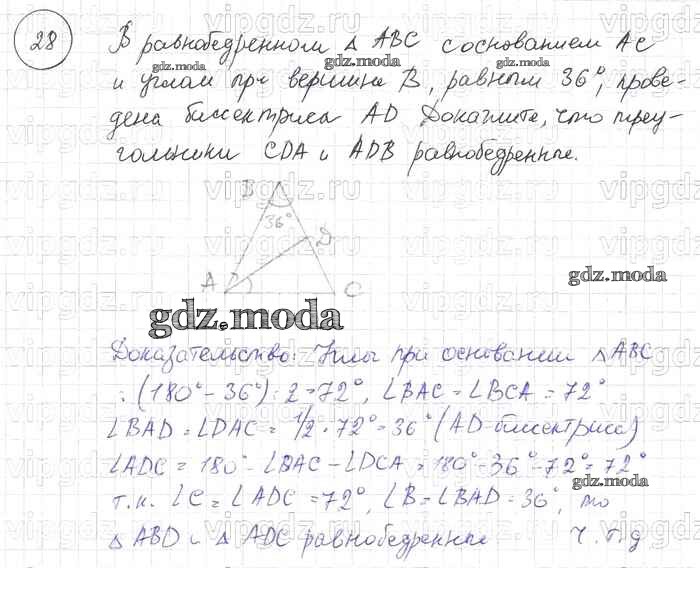 28
В равнобедренном △ ABC с основанием AC
и углом при вершине B, равным 36°, прове-
дена биссектриса AD. Докажите, что треу-
гольники CDA и ADB равнобедренные.
B
36°
D
A
C
gdz.moda
gdz.moda
Доказательство: Углы при основании △ABC
: (180° - 36°) : 2 = 72°, ∠BAC = ∠BCA = 72°
∠BAD = ∠DAC = 1/2 · 72° = 36° (AD - биссектриса)
∠ADC = 180° - ∠DAC - ∠DCA = 180° - 36° - 72° = 72°
т.к. ∠C = ∠ADC = 72°, ∠B = ∠BAD = 36°, то
△ ABD и △ ADC равнобедренные Ч.т.д